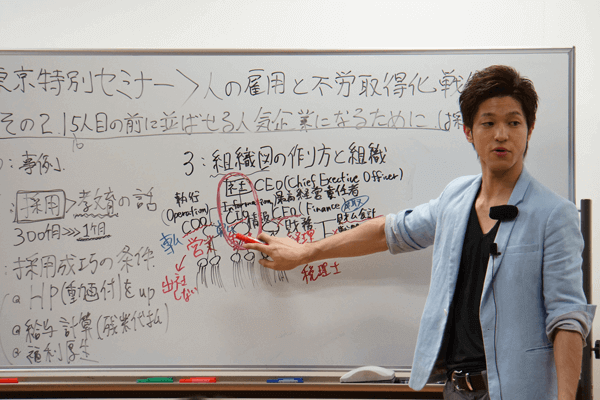 東京特別セミナー＞人の雇用と不労取得化戦
その2.15人目の前に並ばせる人気企業になるために(採
事例
3:組織図の作り方と組織
採用＞教育の話
300個⋙1個
執行
(Operation)
社 CEO(Chief Exective Officer)
Information 最高経営責任者
COO CFO(Finance
営業
財務
税理士
出社
しない
:採用成功の条件
@HP(動画付)をup
@給与計算(残業代払)
@福利厚生